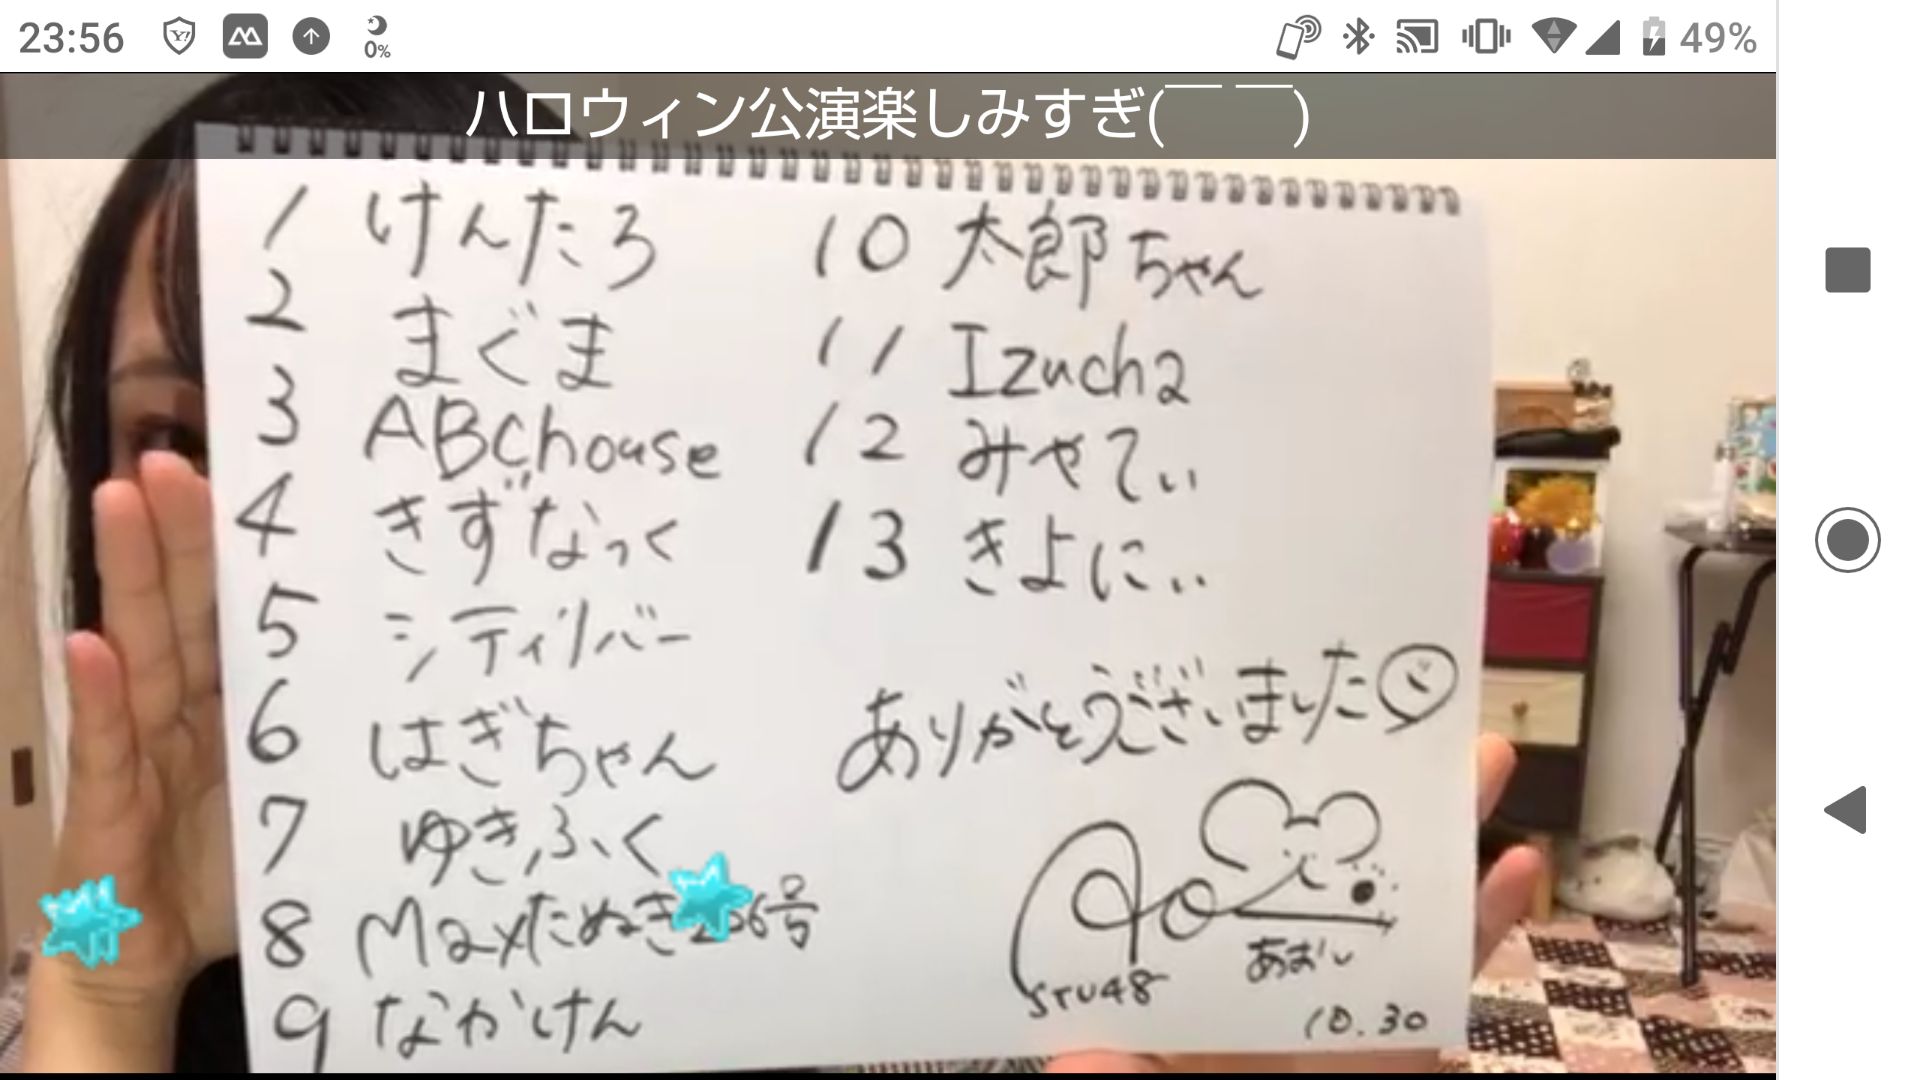 23:56
0%
49%
ハロウィン公演楽しみすぎ(￣ ￣)
1 けんたろ
2 まぐま
3 ABChouse
4 きずなっく
5 シティリバー
6 はぎちゃん
7 ゆきふく
8 Maxたぬき 号
9 なかけん
10 太郎ちゃん
11 Izucha
12 みやてぃ
13 きよにぃ
ありがとうございました
STU48
あおい
10.30